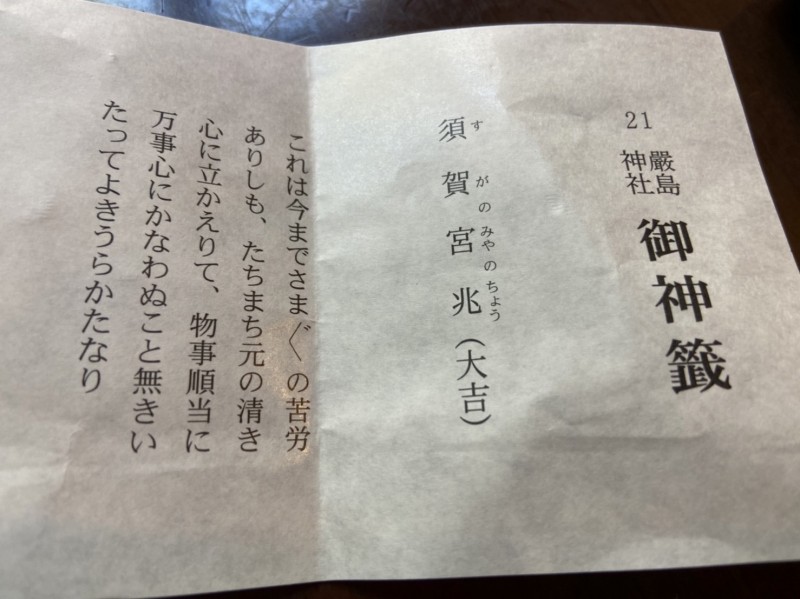 21
嚴島
神社
御神籤
須賀宮兆(大吉)
すがのみやのちょう
これは今までさま〴〵の苦労
ありしも、たちまち元の清き
心に立かえりて、物事順当に
万事心にかなわぬこと無きい
たってよきうらかたなり